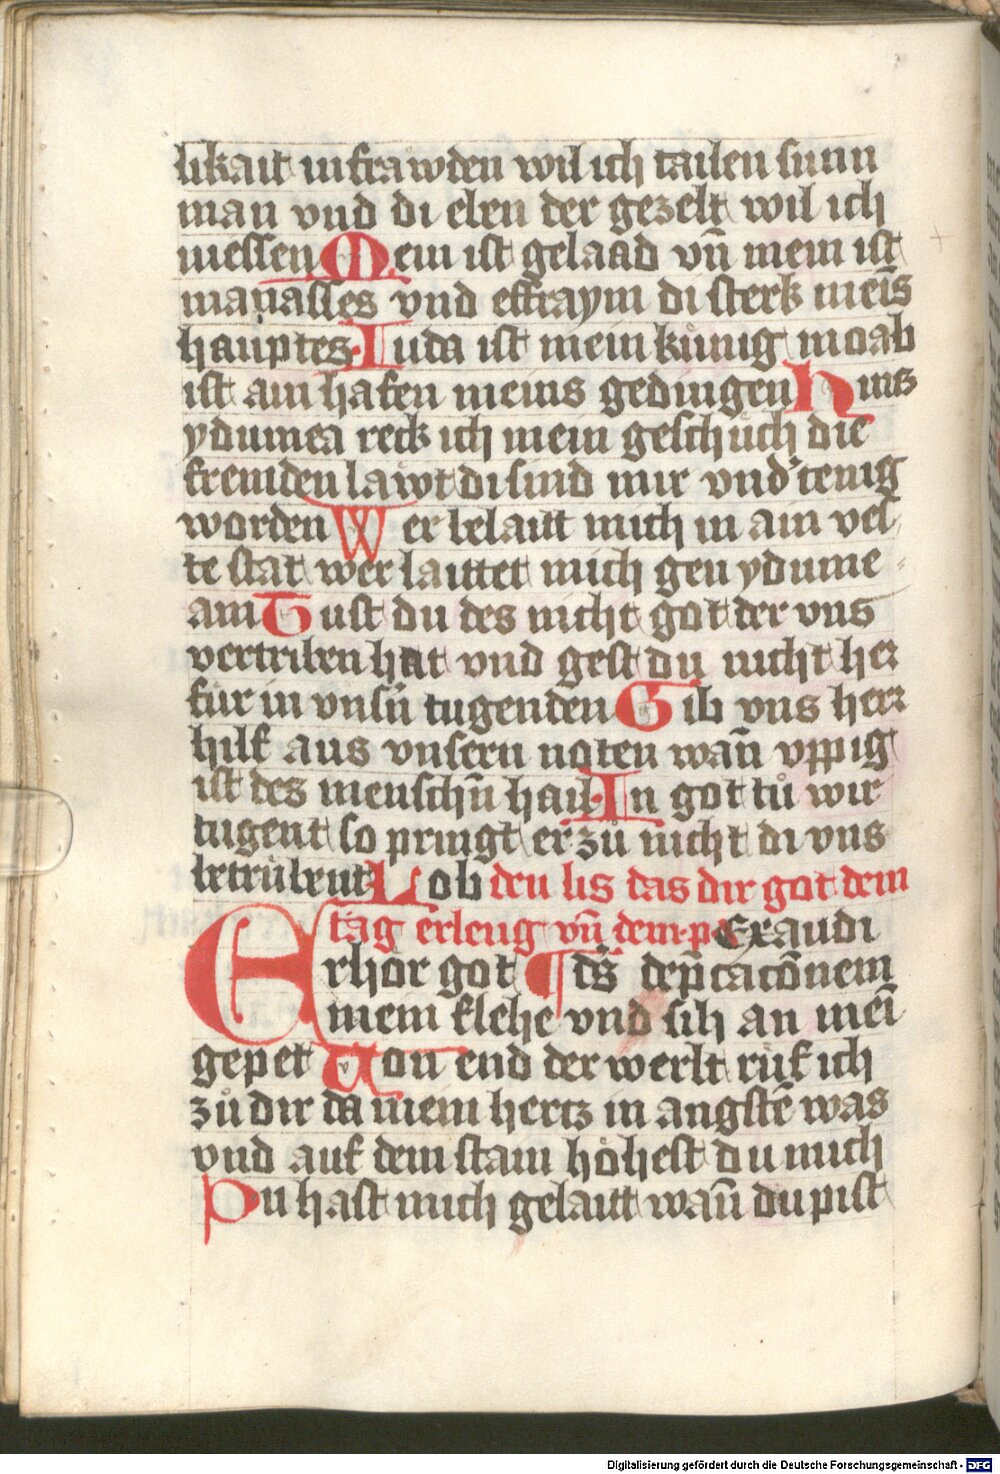 likait in frawden wil ich tailen sunn
man vnd di elen der gezelt wil ich
messen Mein ist gelaad vn̄ mein ist
manasses vnd effraym di sterk meīs
hauptes Iuda ist mein kunig moab
ist ain hafen meins gedingen Hins
ydumea reck ich mein geschuch die
fremden lawt di sind mir vnd'tenig
worden Wer belaitt mich in ain ves
te stat wer laittet mich gen ydume-
am Tust du des nicht got der vns
vertriben hat vnd gest du nicht her
fur in vnsn̄ tugenden Gib vns herr
hilf aus vnsern noten wan̄ vppig
ist des menschn̄ hail In got tů wir
tugent so pringt er zů nicht di vns
betrůbent Lob den lis das dir got dem
tag erleug vn̄ dem p Exaudi
Erhör got ds̄ dep̄cacōnem
mein flehe vnd sih an mei̅
gepet Von end der werlt ruf ich
zů dir da mein hertz in angstē was
vnd auf dem stain höhest du mich
Du hast mich gelaitt wan̄ du pist
Digitalisierung gefördert durch die Deutsche Forschungsgemeinschaft - DFG